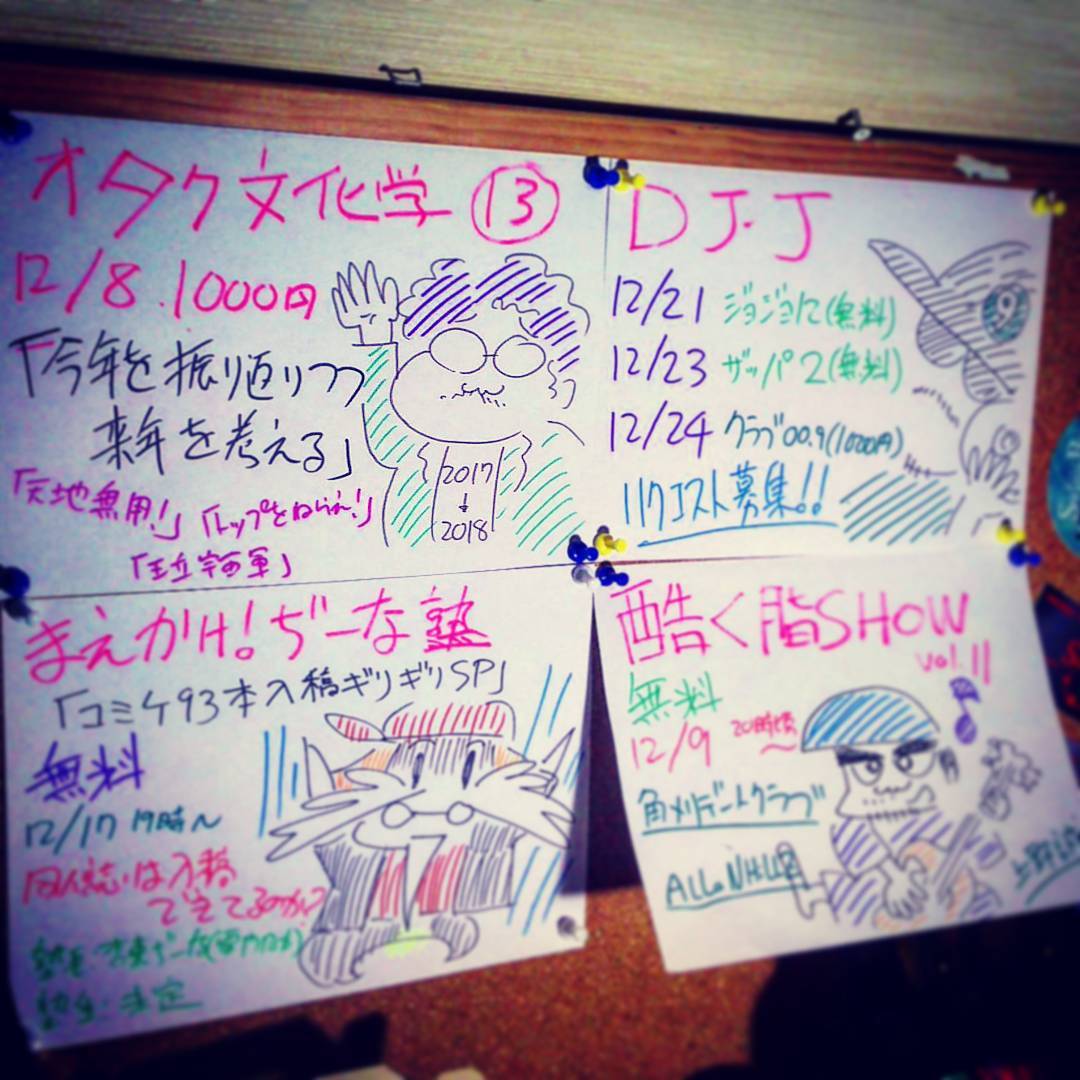 オタク文化学 ⑬
12/8 1000円
「今年を振り返りつつ
来年を考える」
「天地無用!」「トップをねらえ!」
「王立宇宙軍」
2017
↓
2018
DJ.J
12/21 ジョジョ12(無料)
12/23 ザッパ2(無料)
12/24 クラブ00.9(1000円)
リクエスト募集!!
9
まえかけ!ぢーな塾
「コミケ93本入稿ギリギリSP」
無料
12/17 19時〜
同人誌は入稿
できてるのか?
塾生:未定
酷く脂SHOW
vol.11
無料
12/9 20時頃〜